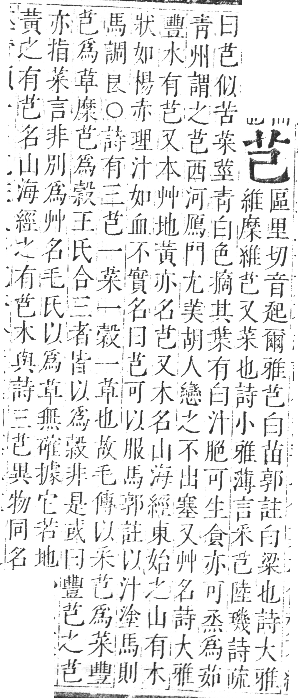 芑
區里切音起爾雅芑白苗郭註白粱也詩大雅
維穈維芑又菜也詩小雅薄言采芑陸璣詩疏
曰芑似苦菜莖青白色摘其葉有白汁肥可生食亦可烝為茹
青州謂之芑西河鴈門尢美胡人戀之不出塞又艸名詩大雅
豐水有芑又本艸地黃亦名芑又木名山海經東始之山有木
狀如楊赤理汁如血不實名曰芑可以服馬郭註以汁塗馬則
馬調良○詩有三芑一菜一穀一草也故毛傳以采芑為菜豐
芑為草穈芑為穀王氏合三者皆以為穀非是或曰豐芑之芑
亦指菜言非別為艸名毛氏以為草無確據它若地
黃之有芑名山海經之有芑木與詩三芑異物同名